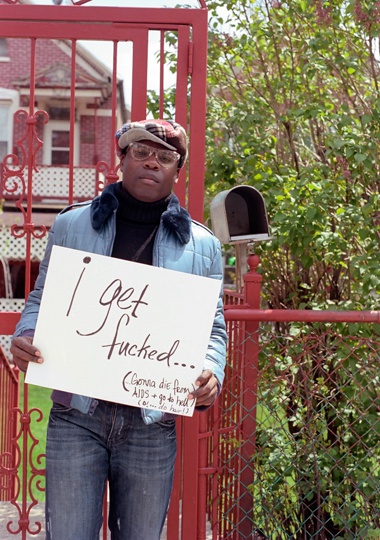 i get
fucked...
(Gonna die from
AIDS + go to hell)